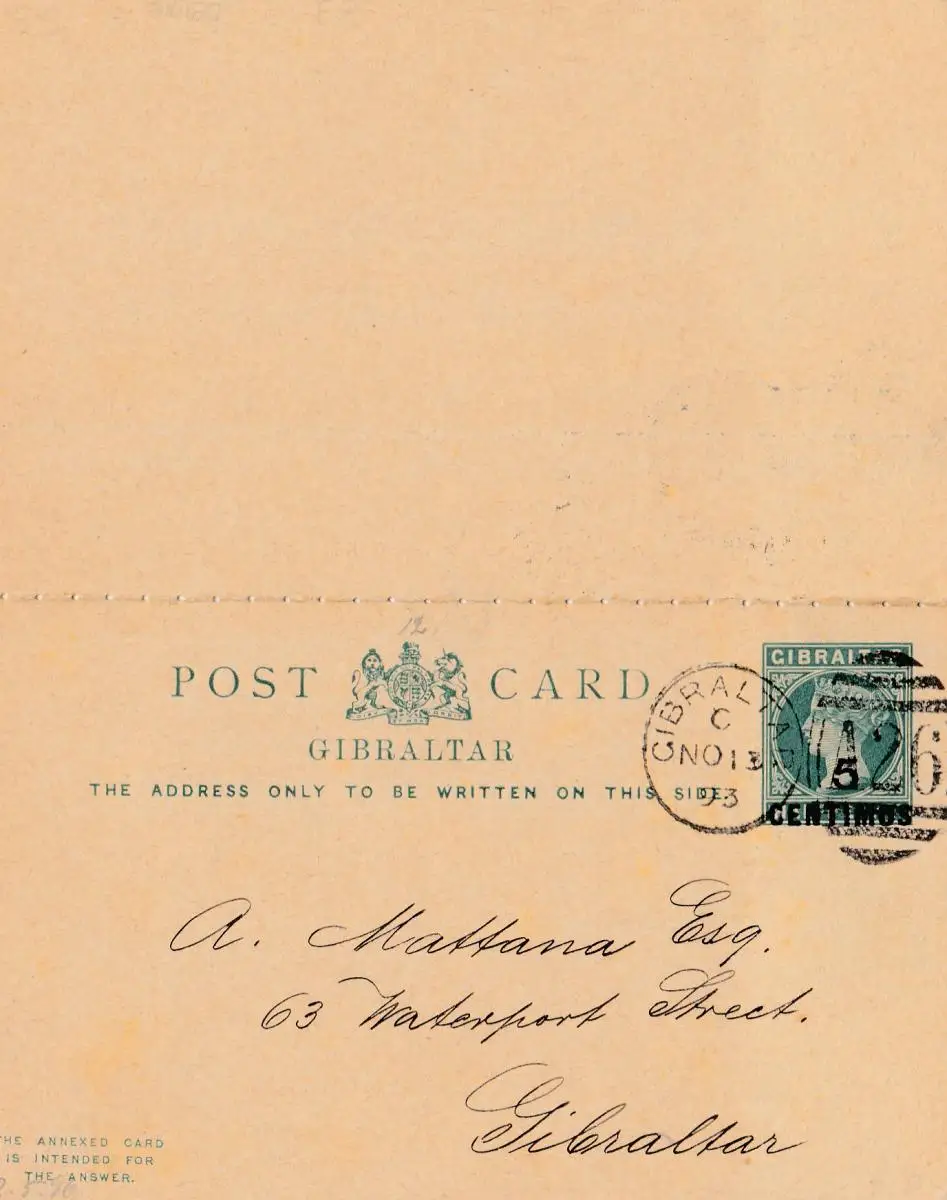 12.
POST CARD
GIBRALTAR
THE ADDRESS ONLY TO BE WRITTEN ON THIS SIDE.
GIBRALTAR
C
NO 13
93
GIBRALTAR
A26
5
CENTIMOS
A. Mattana Esq.
63 Waterport Street.
Gibraltar
THE ANNEXED CARD
IS INTENDED FOR
THE ANSWER.